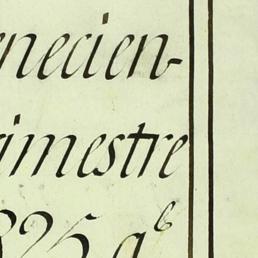 enecien-
rimestre
825 a^s